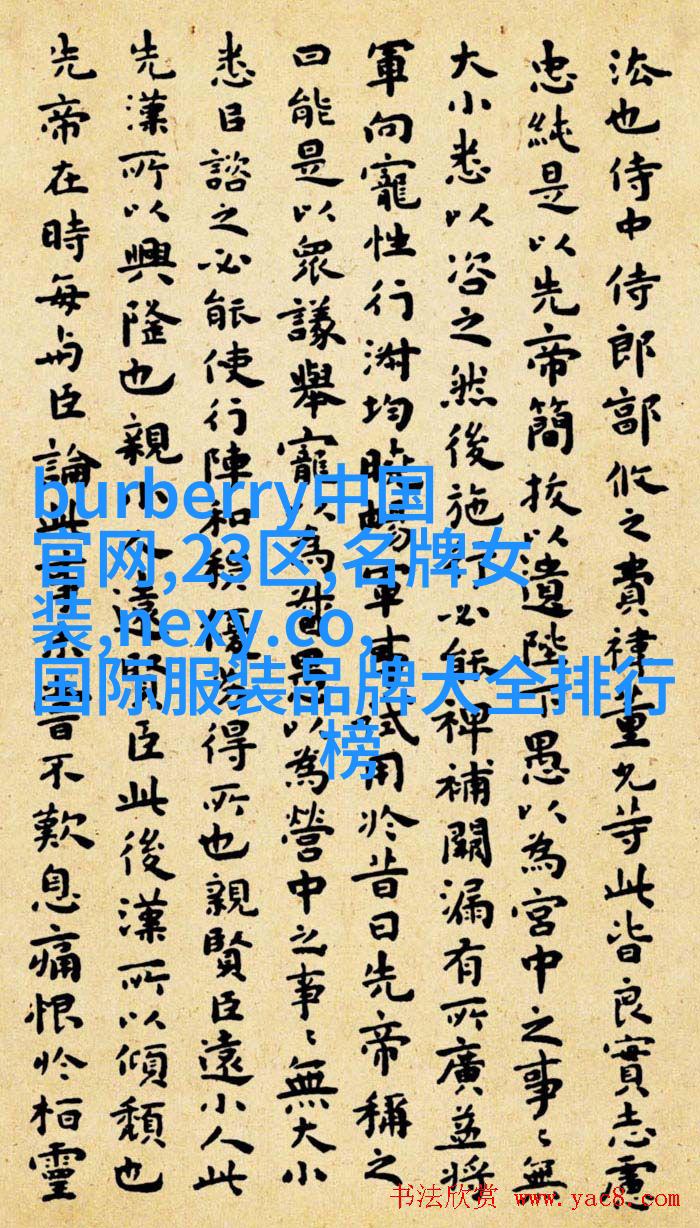 法也侍中侍郎郭攸之費禕董允等此皆良實志慮
忠純是以先帝簡拔以遺陛下愚以為宮中之事〻無
大小悉以咨之然後施行必能裨補闕漏有所廣益將
軍向寵性行淑均曉暢軍事試用於昔日先帝稱之
曰能是以眾議舉寵以為督愚以為營中之事〻無大小
悉㠯諮之必能使行陣和穆優劣得所也親賢臣遠小人此
先漢所以興隆也親小人遠賢臣此後漢所以傾頹也
先帝在時每与臣論此事未嘗不歎息痛恨於桓靈
burberry中国
官网,23区,名牌女
装,nexy.co,
国际服装品牌大全排行
榜
书法欣赏 www.yac8.com